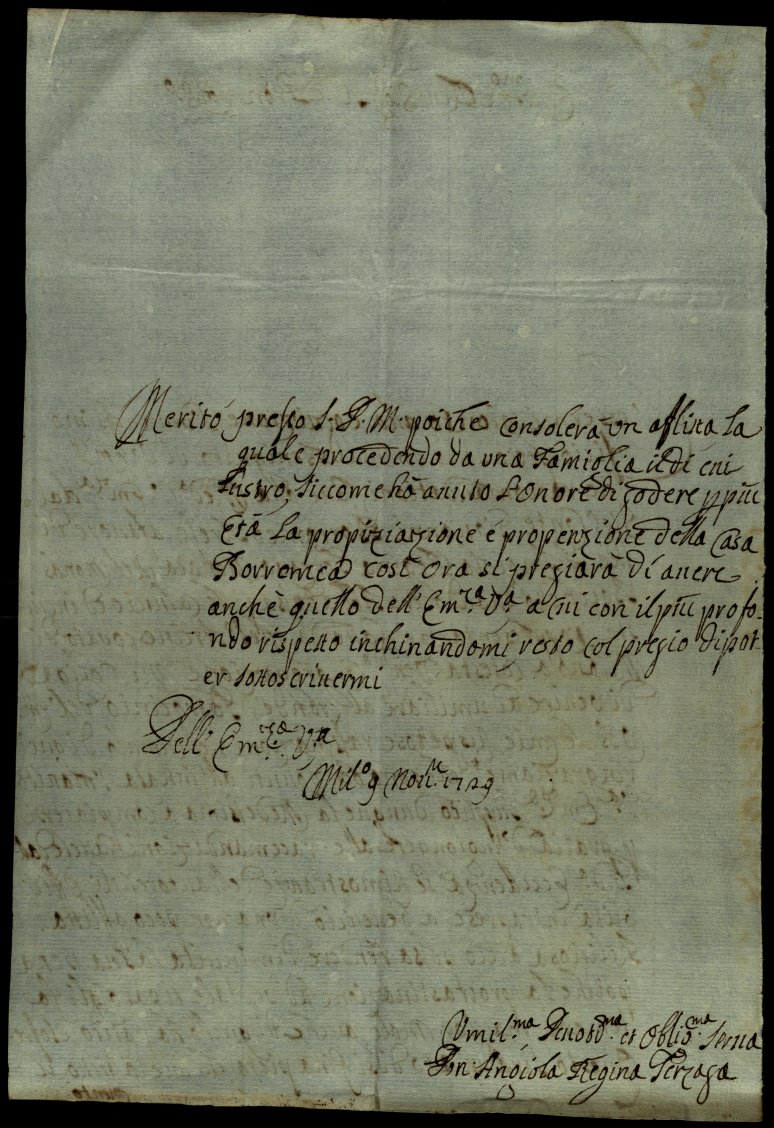 Merito presso S. D. M. poiche consolerà un aflitta la
quale procedendo da una Famiglia il di cui
Lustro, siccome hà auuto L'Onore di godere p più
Età La propiziazione é propenzione della Casa
Borromea così Ora si pregiarà di auere
anchè quello dell' Em.za V.ra a cui con il più profo-
ndo rispetto inchinandomi resto col pregio di pot-
er sottoscriuermi
Dell' Em.za V.ra
Mil.o 9 Nou.e 1729
Vmil.ma Deuot.ma et Oblig.ma Serua
Don Angiola Regina Terzaga